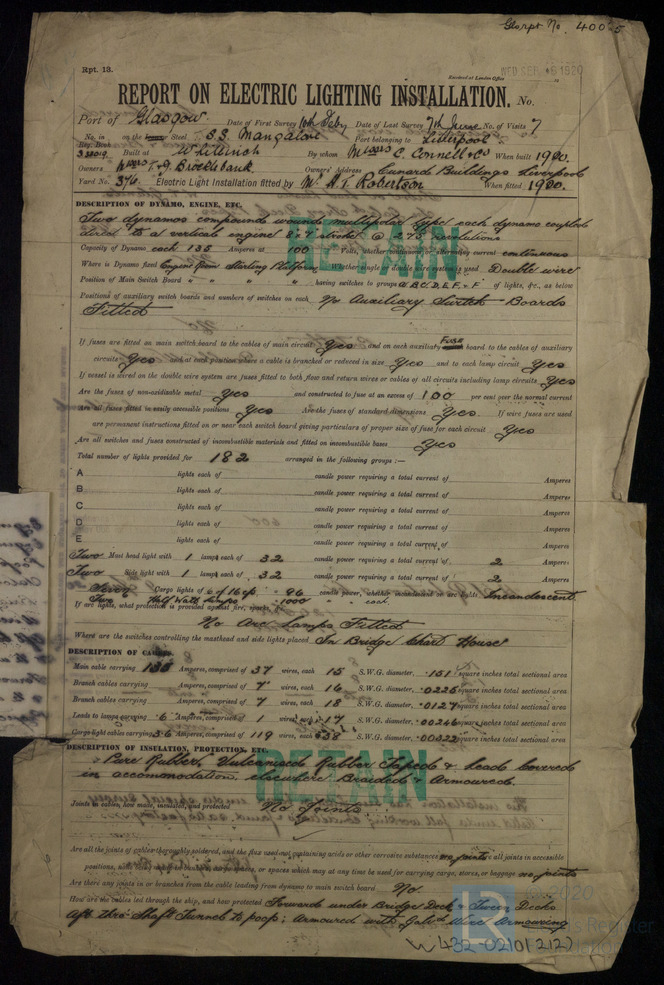 Glsrpt No. 400
Rpt. 13.
Received at London Office WED SEP 1920
REPORT ON ELECTRIC LIGHTING INSTALLATION. No.
Port of Glasgow Date of First Survey 10th Feby Date of Last Survey 7th June No. of Visits 7
No. in Reg. Book on the Iron or Steel S.S. Mangalore Port belonging to Liverpool
Built at By whom Messrs C. Connell & Co When built 1920.
Owners Messrs T. & J. Brocklebank Owners' Address Cunard Buildings Liverpool
Yard No. 376 Electric Light Installation fitted by Mr. A. T. Robertson When fitted 1920.
DESCRIPTION OF DYNAMO, ENGINE, ETC.
Two dynamos compound wound multipolar type each dynamo coupled
direct to a vertical engine 8 x 7 stroke @ 275 revolutions
Capacity of Dynamo each 135 Amperes at 100 Volts, whether continuous or alternating current continuous
Where is Dynamo fixed Engine Room Starting Platform Whether single or double wire system is used Double wire
Position of Main Switch Board " " " " having switches to groups A, B, C, D, E, F, & F of lights, &c., as below
Positions of auxiliary switch boards and numbers of switches on each No Auxiliary Switch Boards
Fitted
If fuses are fitted on main switch board to the cables of main circuit Yes and on each auxiliary Fuse board to the cables of auxiliary
circuits Yes and at each position where a cable is branched or reduced in size Yes and to each lamp circuit Yes
If vessel is wired on the double wire system are fuses fitted to both flow and return wires or cables of all circuits including lamp circuits Yes
Are the fuses of non-oxidizable metal Yes and constructed to fuse at an excess of 100 per cent over the normal current
Are all fuses fitted in easily accessible positions Yes Are the fuses of standard dimensions Yes. If wire fuses are used
are permanent instructions fitted on or near each switch board giving particulars of proper size of fuse for each circuit Yes
Are all switches and fuses constructed of incombustible materials and fitted on incombustible bases Yes
Total number of lights provided for 182 arranged in the following groups :—
A lights each of candle power requiring a total current of Amperes
B lights each of candle power requiring a total current of Amperes
C lights each of candle power requiring a total current of Amperes
D lights each of candle power requiring a total current of Amperes
E lights each of candle power requiring a total current of Amperes
Two Mast head light with 1 lamps each of 32 candle power requiring a total current of 2 Amperes
Two Side light with 1 lamps each of 32 candle power requiring a total current of 2 Amperes
Seven Cargo lights of 6 of 16 cp. 96 candle power, whether incandescent or arc lights Incandescent
Two Half Watt Lamps 1000 " " each.
If arc lights, what protection is provided against fire, sparks, &c.
No Arc Lamps Fitted
Where are the switches controlling the masthead and side lights placed In Bridge Chart House
DESCRIPTION OF CABLES.
Main cable carrying 135 Amperes, comprised of 37 wires, each 15 S.W.G. diameter, .151 square inches total sectional area
Branch cables carrying Amperes, comprised of 7 wires, each 16 S.W.G. diameter, .0225 square inches total sectional area
Branch cables carrying Amperes, comprised of 7 wires, each 18 S.W.G. diameter, .0127 square inches total sectional area
Leads to lamps carrying .6 Amperes, comprised of 1 wires, each 17 S.W.G. diameter, .00246 square inches total sectional area
Cargo light cables carrying 3.6 Amperes, comprised of 119 wires, each 38 S.W.G. diameter, .00322 square inches total sectional area
DESCRIPTION OF INSULATION, PROTECTION, ETC.
Pure Rubber, Vulcanised Rubber Taped & Lead Covered
in accommodation, elsewhere Braided & Armoured.
Joints in cables, how made, insulated, and protected No Joints
Are all the joints of cables thoroughly soldered, and the flux used not containing acids or other corrosive substances no joints all joints in accessible
positions, or spaces which may at any time be used for carrying cargo, stores, or baggage no joints
Are there any joints in or branches from the cable leading from dynamo to main switch board No
How are the cables led through the ship, and how protected Forward under Bridge Deck & Tween Decks
Aft thro Shaft Tunnel to poop; Armoured with Galvd Wire Armouring
RETAIN
RETAIN
© 2020
Lloyd's Register
Foundation
W432-0210(212)